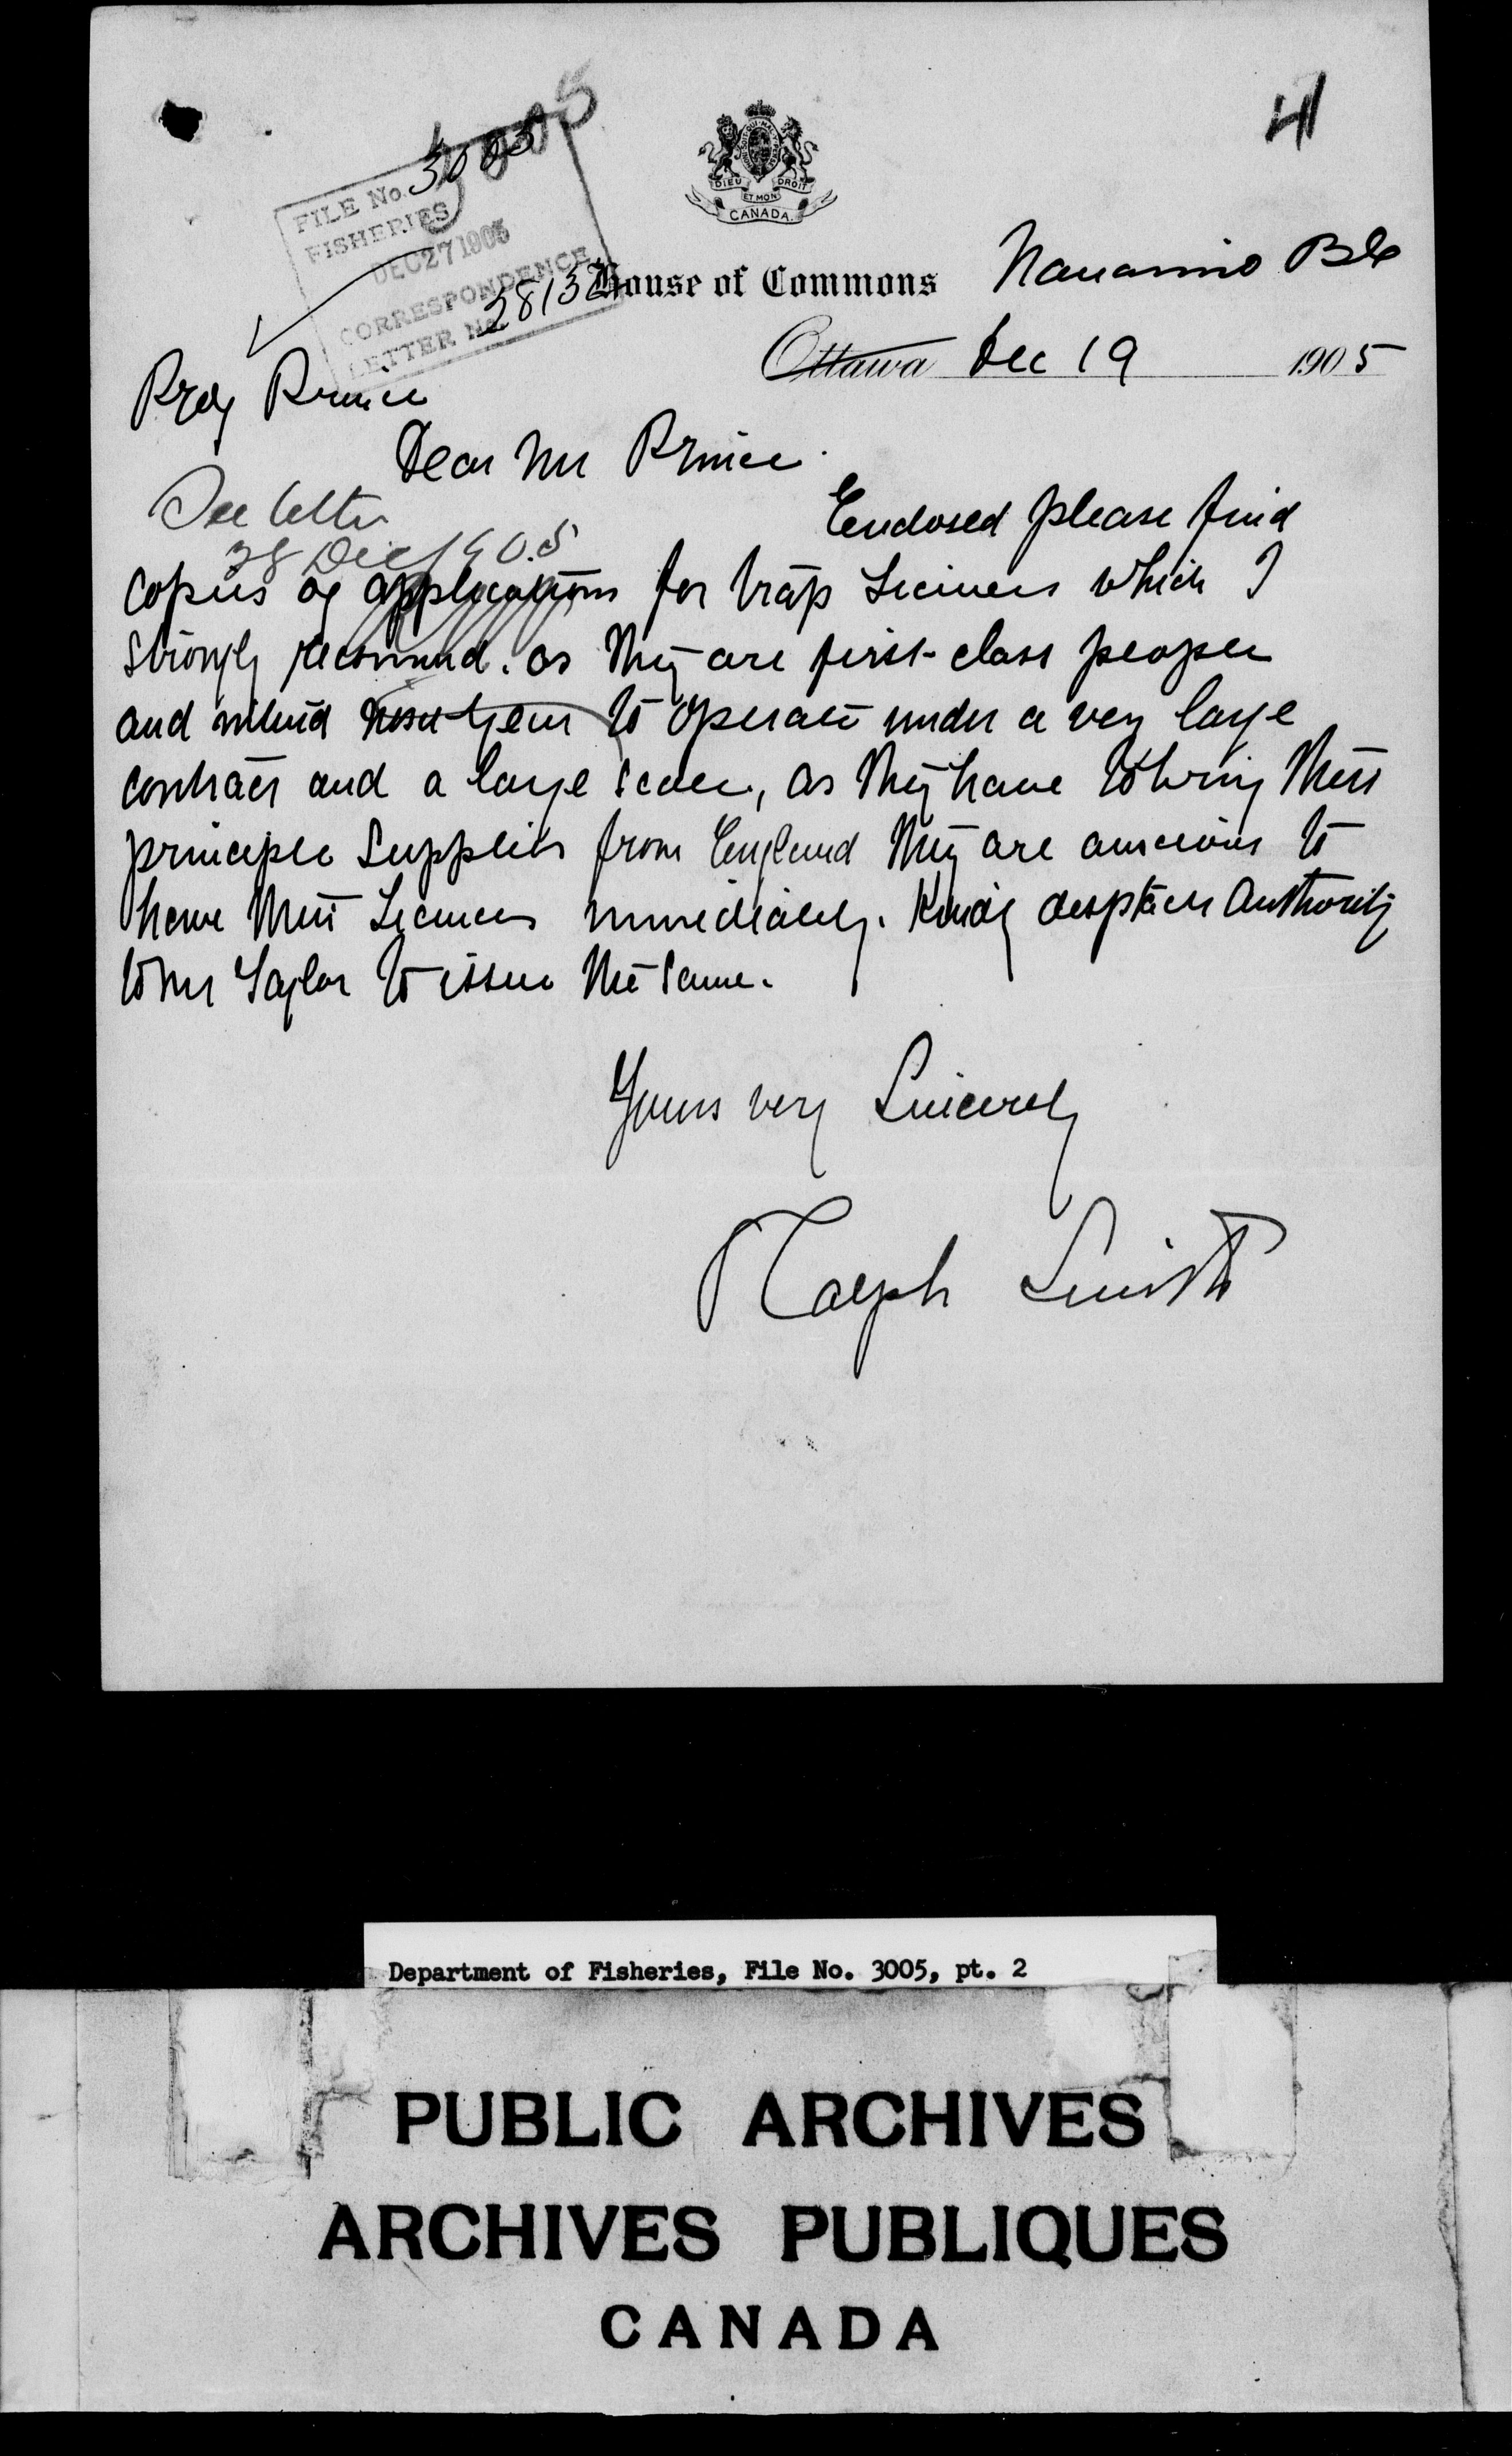 41
3005
FILE No. 3005
FISHERIES
DEC 27 1905
CORRESPONDENCE
LETTER No. 28132
DIEU ET MON DROIT
CANADA
House of Commons Nanaimo BC
Ottawa Dec 19 1905
Prof Prince
Dear Mr Prince.
See letter
28 Dec 1905
Enclosed please find
copies of applications for trap Licinces which I
strongly recommend. as they are first-class people
and intend next year to operate under a very large
contract and a large scale, as they have to bring their
principle supplies from England they are anxious to
have their Licences immediately. Kindly despatch Authority
to Mr Taylor to issue the same.
Yours very Sincerely
Ralph Smith
Department of Fisheries, File No. 3005, pt. 2
PUBLIC ARCHIVES
ARCHIVES PUBLIQUES
CANADA